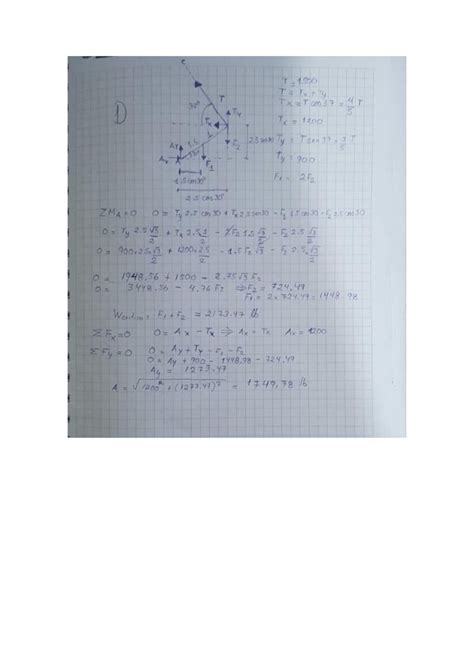 1)
c
T
Ty
Tx
30°
L
F2
2.5 sen30
1.5
Ay
Ax
F1
1.5 cos30°
2.5 cos30°
T = 1500
T = Tx + Ty
Tx = T cos 37 = 4/5 T
Tx = 1200
Ty = T sen 37 = 3/5 T
Ty = 900
F1 = 2F2
ΣMA = 0 0 = Ty 2.5 cos30 + Tx 2.5 sen30 - F1 1.5 cos30 - F2 2.5 cos30
0 = Ty 2.5 √3/2 + Tx 2.5 1/2 - 2F2 1.5 √3/2 - F2 2.5 √3/2
0 = 900×2.5×√3/2 + 1200×2.5/2 - 1.5 F2 √3 - F2 2.5 √3/2
0 = 1948.56 + 1500 - 2.75√3 F2
0 = 3448.56 - 4.76 F2 ⇒ F2 = 724.49
F1 = 2 × 724.49 = 1448.98
F1 + F2 = 2173.47 lb
ΣFx = 0 0 = Ax - Tx ⇒ Ax = Tx Ax = 1200
ΣFy = 0 0 = Ay + Ty - F1 - F2
0 = Ay + 900 - 1448.98 - 724.49
Ay = 1273.47
A = √1200² + (1273.47)² = 1749.78 lb